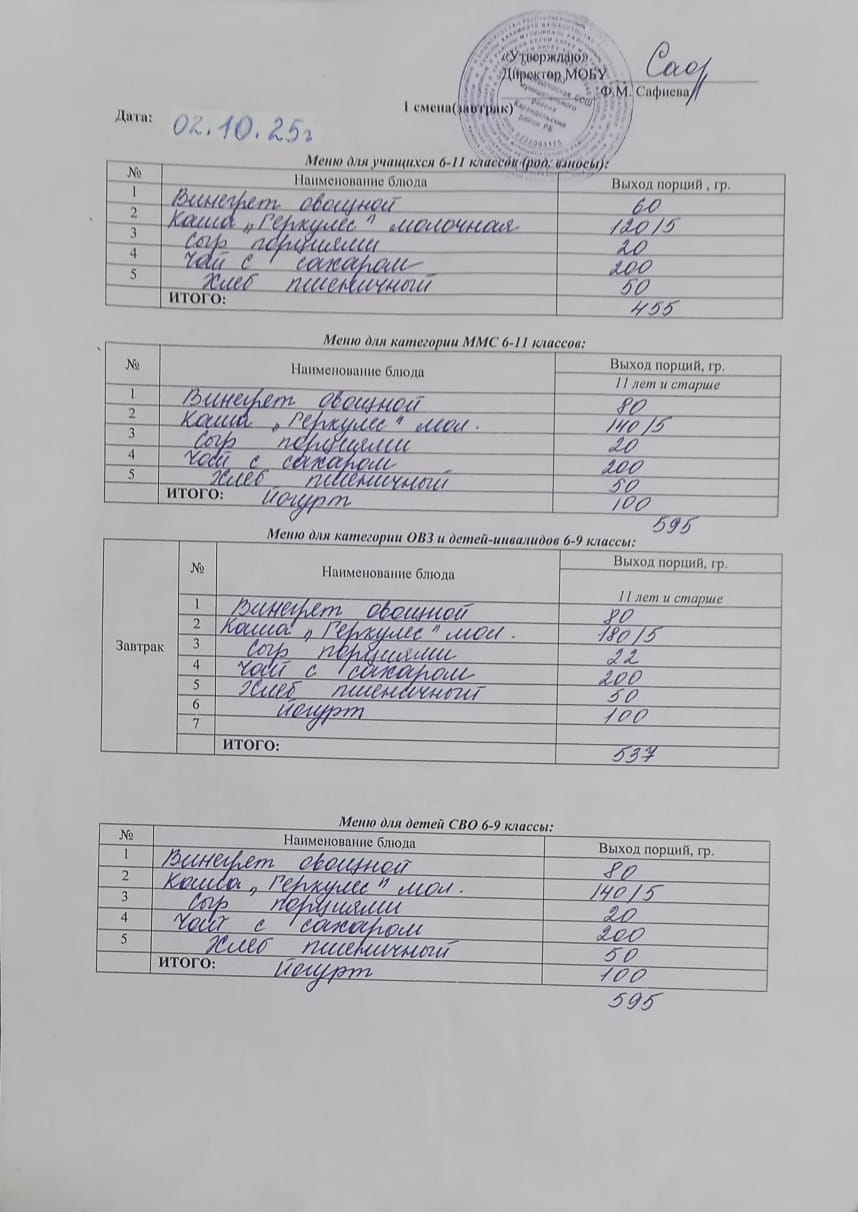 «Утверждаю»
Директор МОБУ
Ф.М. Сафиева
1 смена(завтрак)
Дата: 02.10.25г
Меню для учащихся 6-11 классов (род. взносы):
№ Наименование блюда Выход порций , гр.
1 Винегрет овощной 60
2 Каша „Геркулес" молочная 120/5
3 Сыр порциями 20
4 Чай с сахаром 200
5 Хлеб пшеничный 50
ИТОГО: 455
Меню для категории ММС 6-11 классов:
№ Наименование блюда Выход порций, гр.
11 лет и старше
1 Винегрет овощной 80
2 Каша „Геркулес" мол. 140/5
3 Сыр порциями 20
4 Чай с сахаром 200
5 Хлеб пшеничный 50
ИТОГО: йогурт 100
595
Меню для категории ОВЗ и детей-инвалидов 6-9 классы:
Завтрак № Наименование блюда Выход порций, гр.
11 лет и старше
1 Винегрет овощной 80
2 Каша „Геркулес" мол. 180/5
3 Сыр порциями 22
4 Чай с сахаром 200
5 Хлеб пшеничный 50
6 йогурт 100
7
ИТОГО: 537
Меню для детей СВО 6-9 классы:
№ Наименование блюда Выход порций, гр.
1 Винегрет овощной 80
2 Каша „Геркулес" мол. 140/5
3 Сыр порциями 20
4 Чай с сахаром 200
5 Хлеб пшеничный 50
ИТОГО: йогурт 100
595